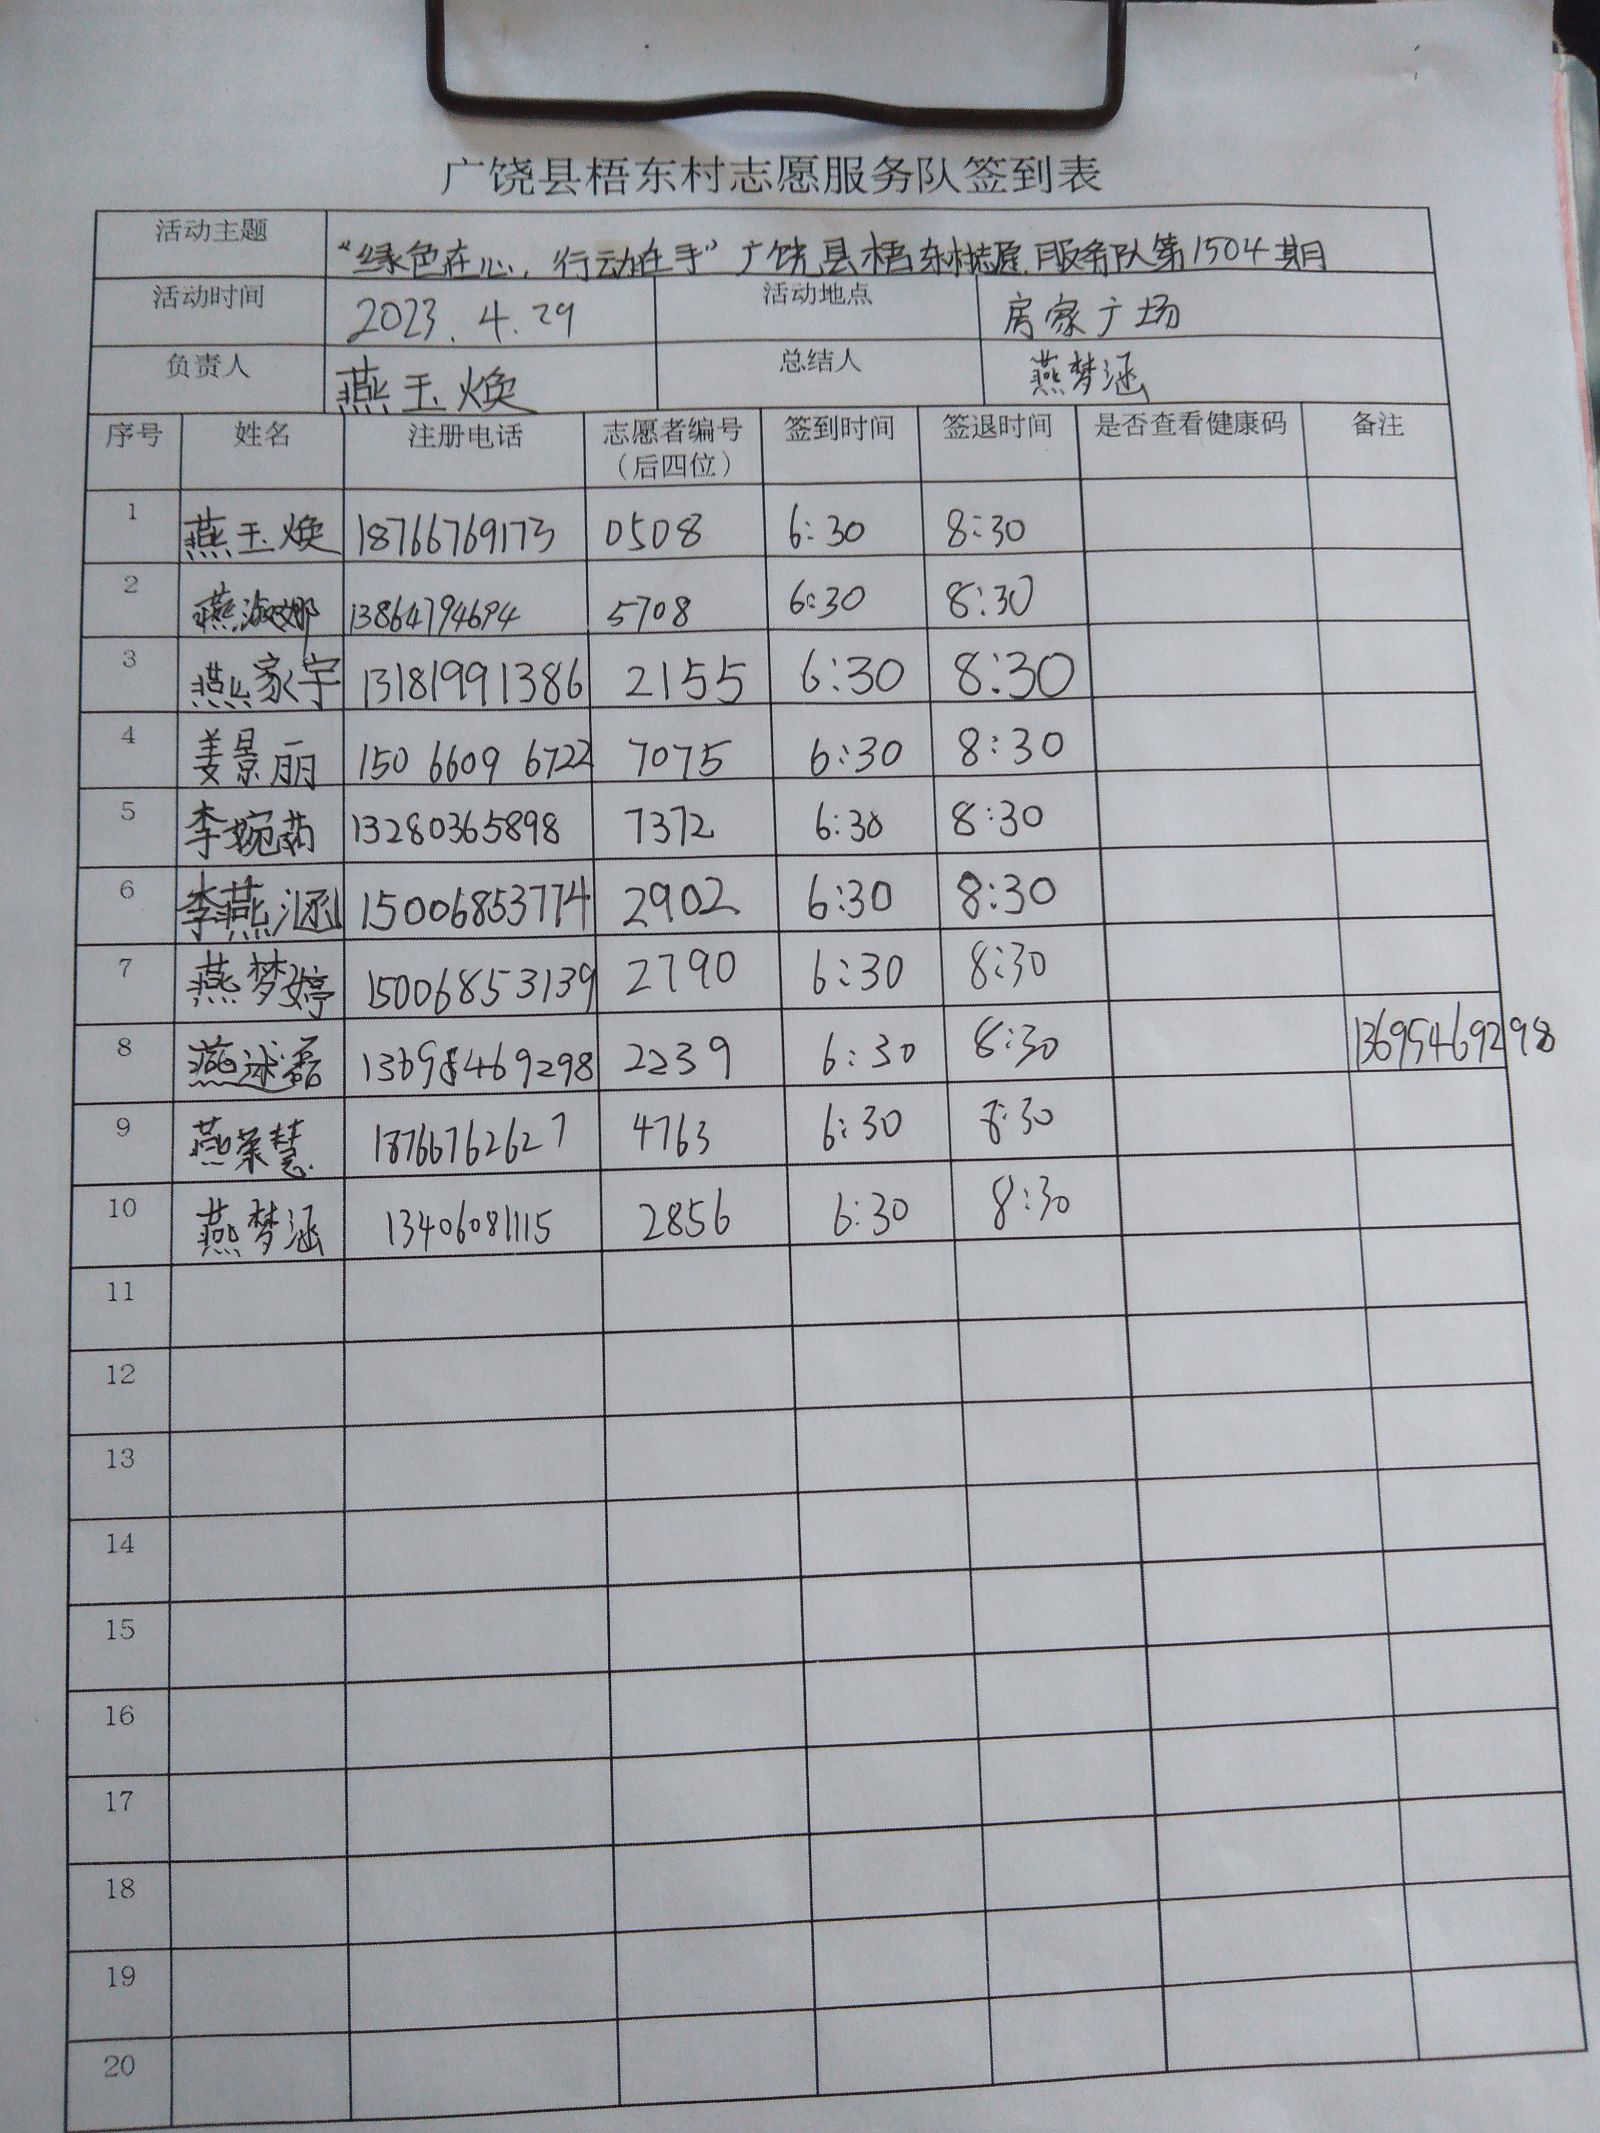 广饶县梧东村志愿服务队签到表
活动主题 “绿色在心，行动在手”广饶县梧东村志愿服务队第1504期
活动时间 2023.4.29 活动地点 房家广场
负责人 燕玉焕 总结人 燕梦涵
序号 姓名 注册电话 志愿者编号 签到时间 签退时间 是否查看健康码 备注
（后四位）
1 燕玉焕 18766769173 0508 6:30 8:30
2 燕淑娜 13864794694 5708 6:30 8:30
3 燕家宇 13181991386 2155 6:30 8:30
4 姜景丽 150 6609 6722 7075 6:30 8:30
5 李婉菂 13280365898 7372 6:30 8:30
6 李燕涵 15006853774 2902 6:30 8:30
7 燕梦婷 15006853139 2790 6:30 8:30
8 燕述磊 13695469298 2239 6:30 8:30 13695469298
9 燕荣慧 18766762627 4763 6:30 8:30
10 燕梦涵 13406081115 2856 6:30 8:30
11
12
13
14
15
16
17
18
19
20